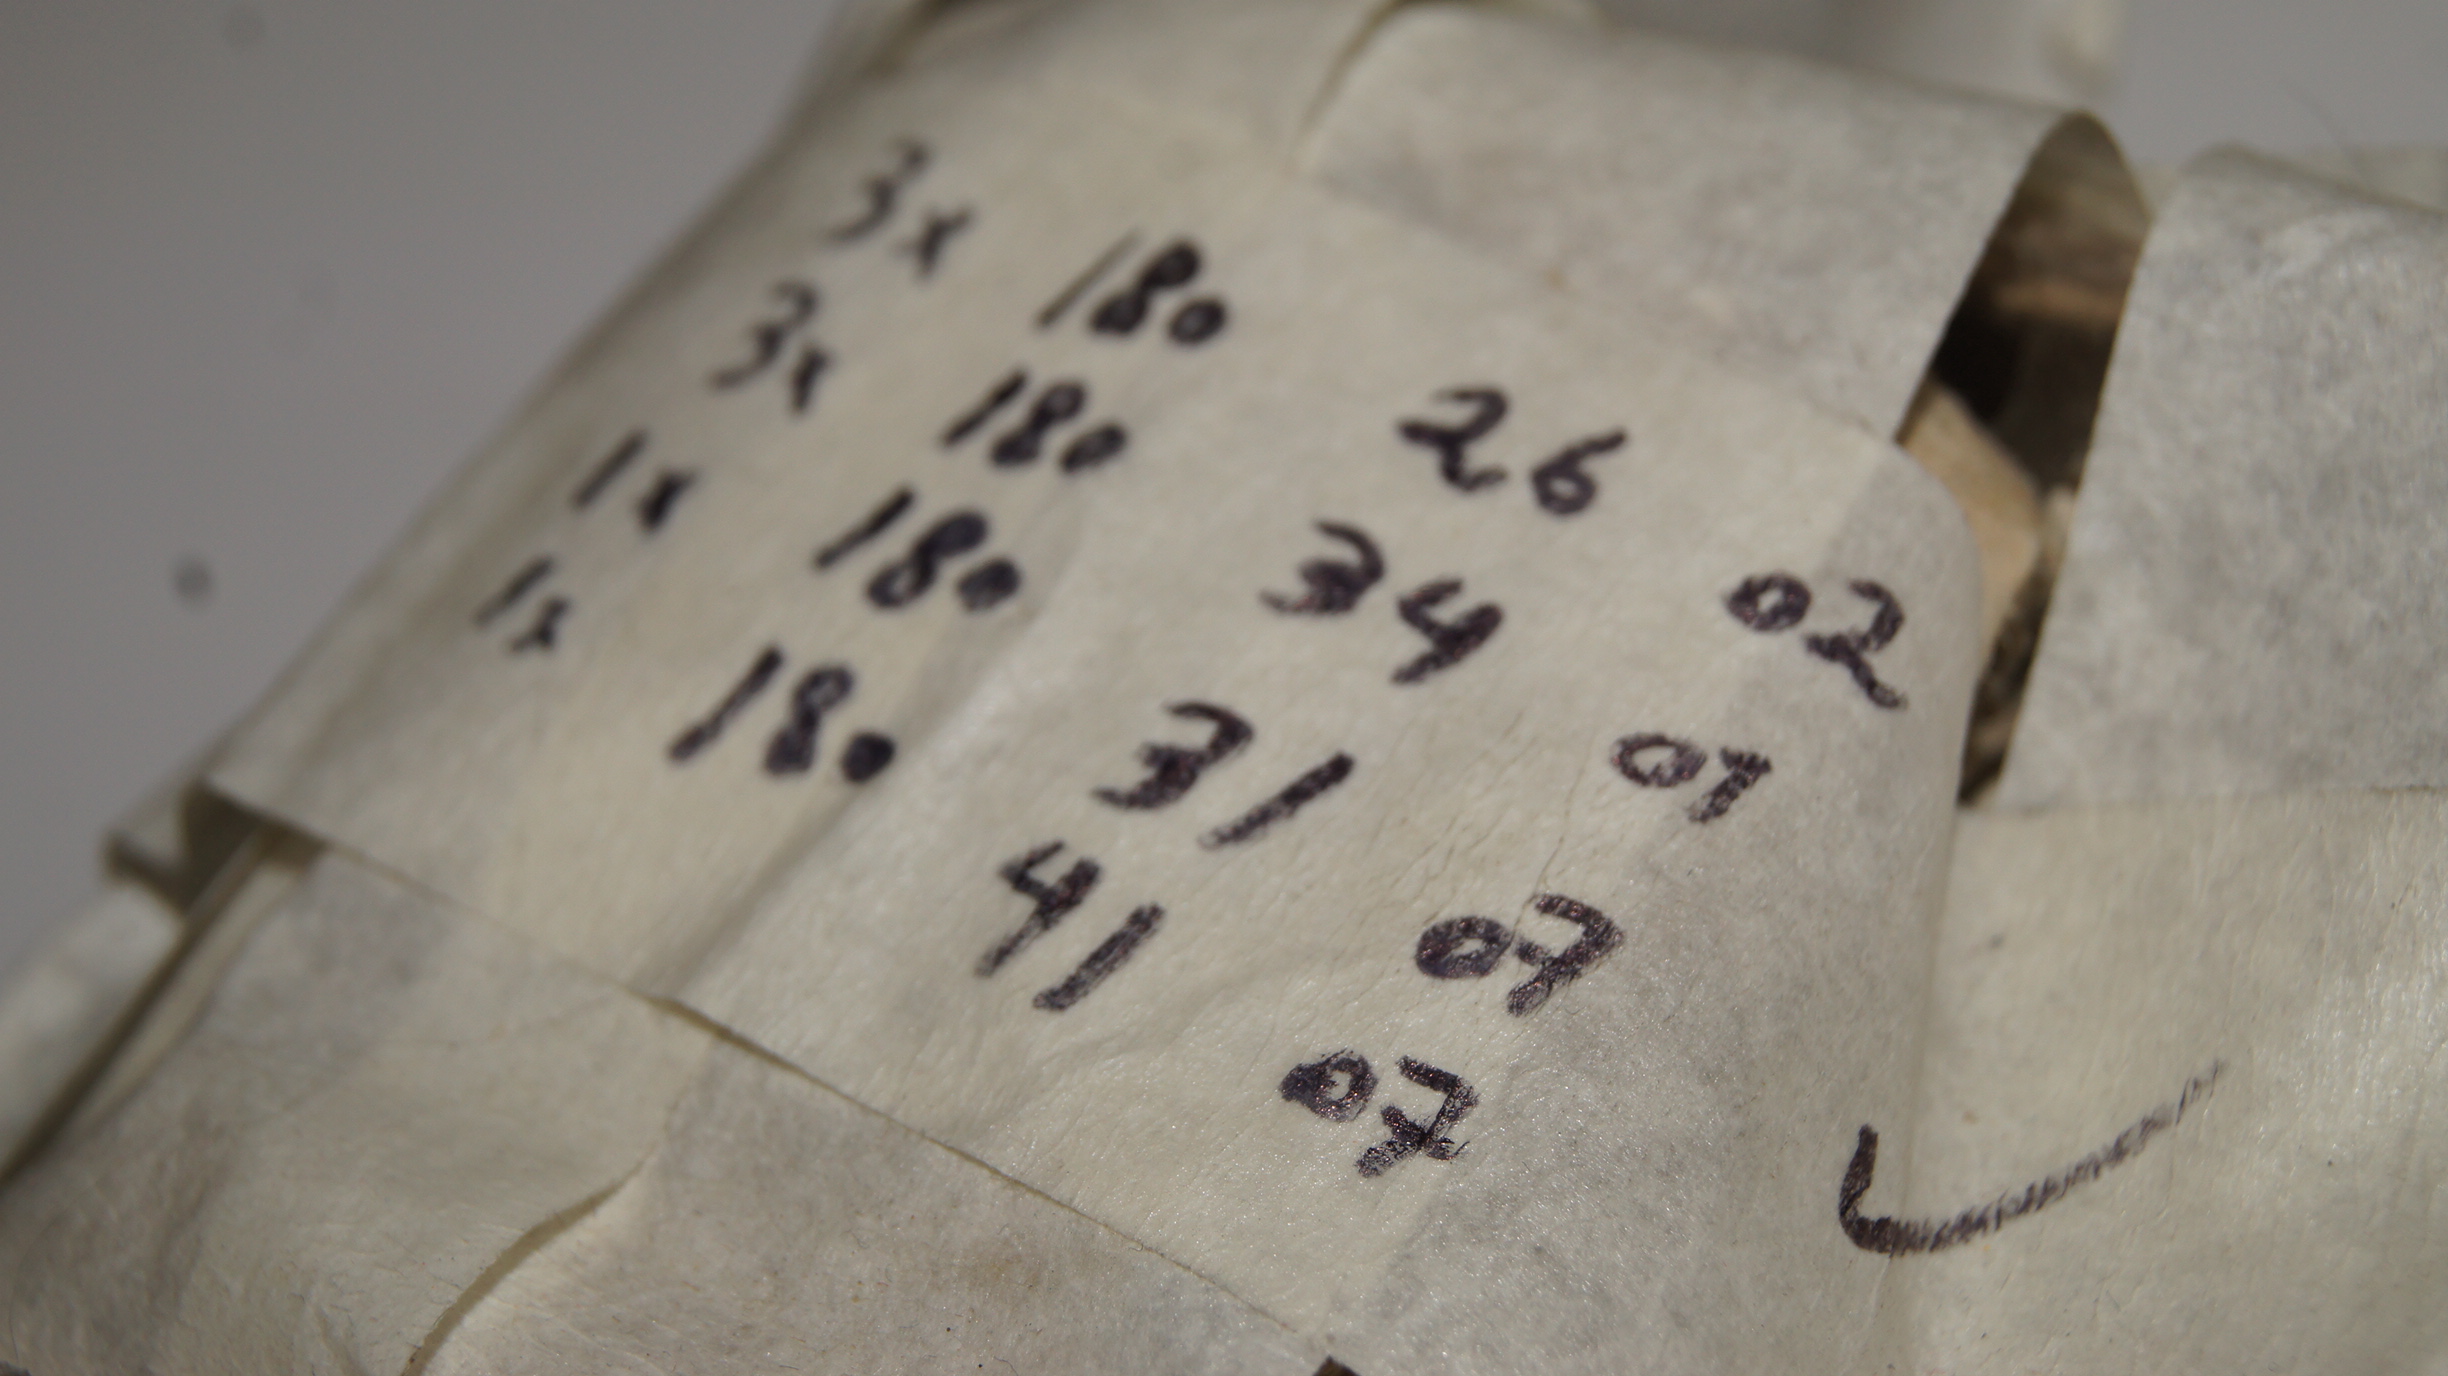 3x 180 26 02
3x 180 34 07
1x 180 31 07
1x 180 41 07